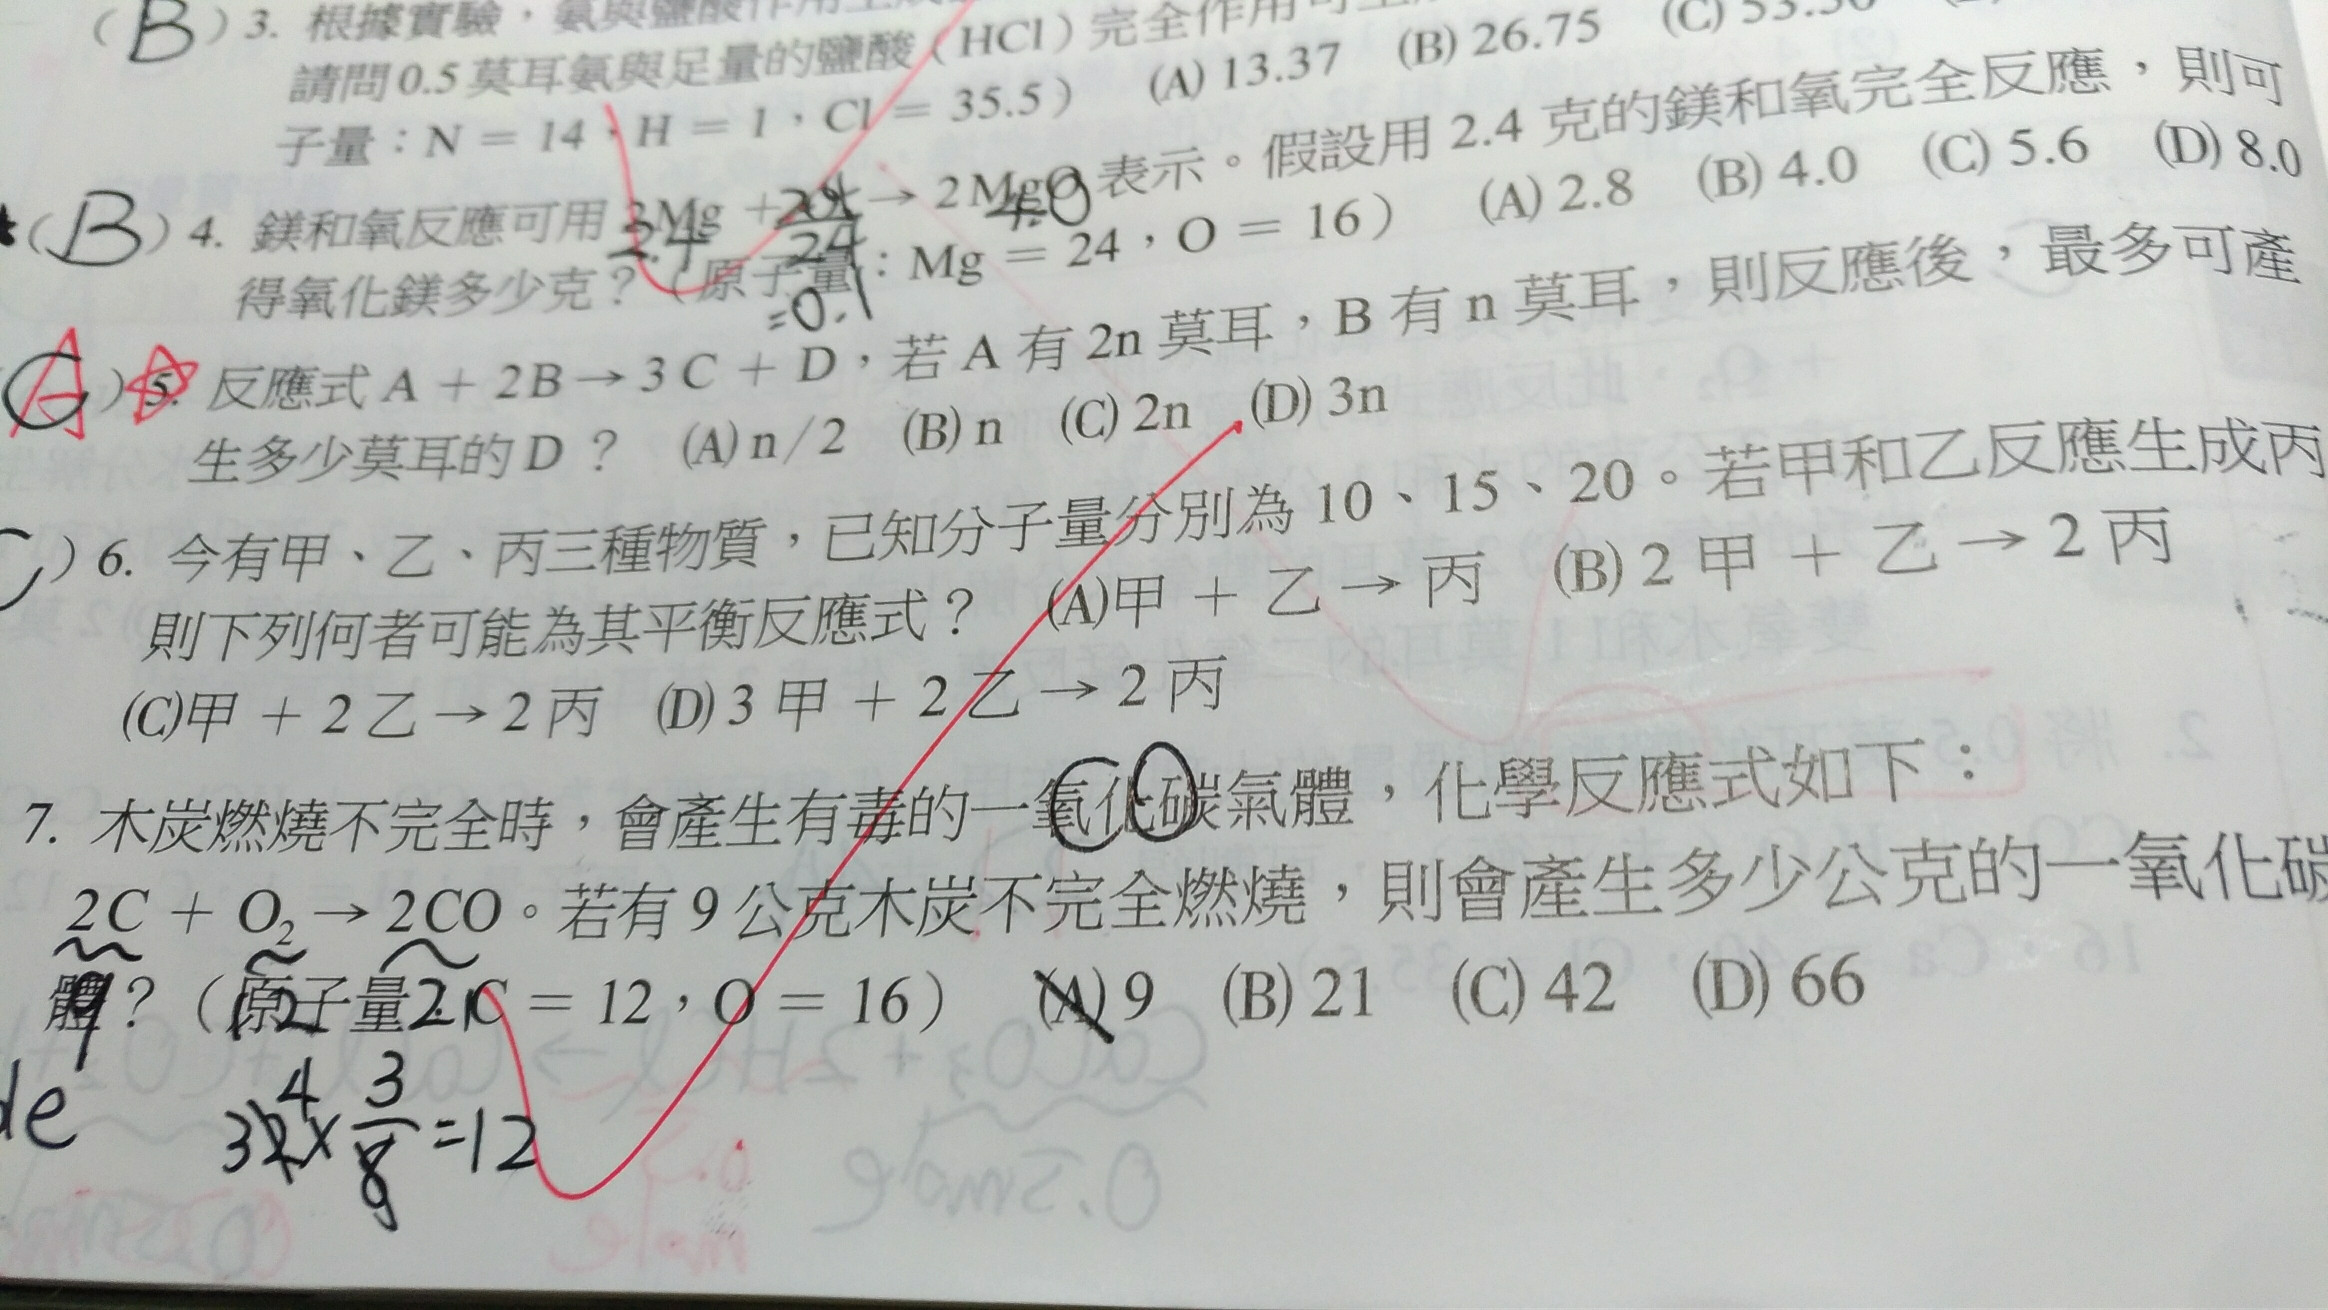 (B) 3. 根據實驗,氨與鹽酸作用生成
請問0.5莫耳氨與足量的鹽酸(HCl)完全作用可
子量:N = 14,H = 1,Cl = 35.5) (A) 13.37 (B) 26.75 (C) 53.50
★(B) 4. 鎂和氧反應可用 2Mg + → 2MgO 表示。假設用 2.4 克的鎂和氧完全反應,則可
2.4 24 4.0
得氧化鎂多少克?(原子量:Mg = 24,O = 16) (A) 2.8 (B) 4.0 (C) 5.6 (D) 8.0
=0.1
A ) 5. 反應式 A + 2B → 3C + D,若 A 有 2n 莫耳,B 有 n 莫耳,則反應後,最多可產
生多少莫耳的 D? (A) n/2 (B) n (C) 2n (D) 3n
C) 6. 今有甲、乙、丙三種物質,已知分子量分別為 10、15、20。若甲和乙反應生成丙
則下列何者可能為其平衡反應式? (A)甲 + 乙 → 丙 (B) 2 甲 + 乙 → 2 丙
(C)甲 + 2 乙 → 2 丙 (D) 3 甲 + 2 乙 → 2 丙
7. 木炭燃燒不完全時,會產生有毒的一氧化碳氣體,化學反應式如下:
2C + O₂ → 2CO。若有 9 公克木炭不完全燃燒,則會產生多少公克的一氧化碳
體?(原子量:C = 12,O = 16) (A) 9 (B) 21 (C) 42 (D) 66
9 12 21
4 3
32 × — = 12
8